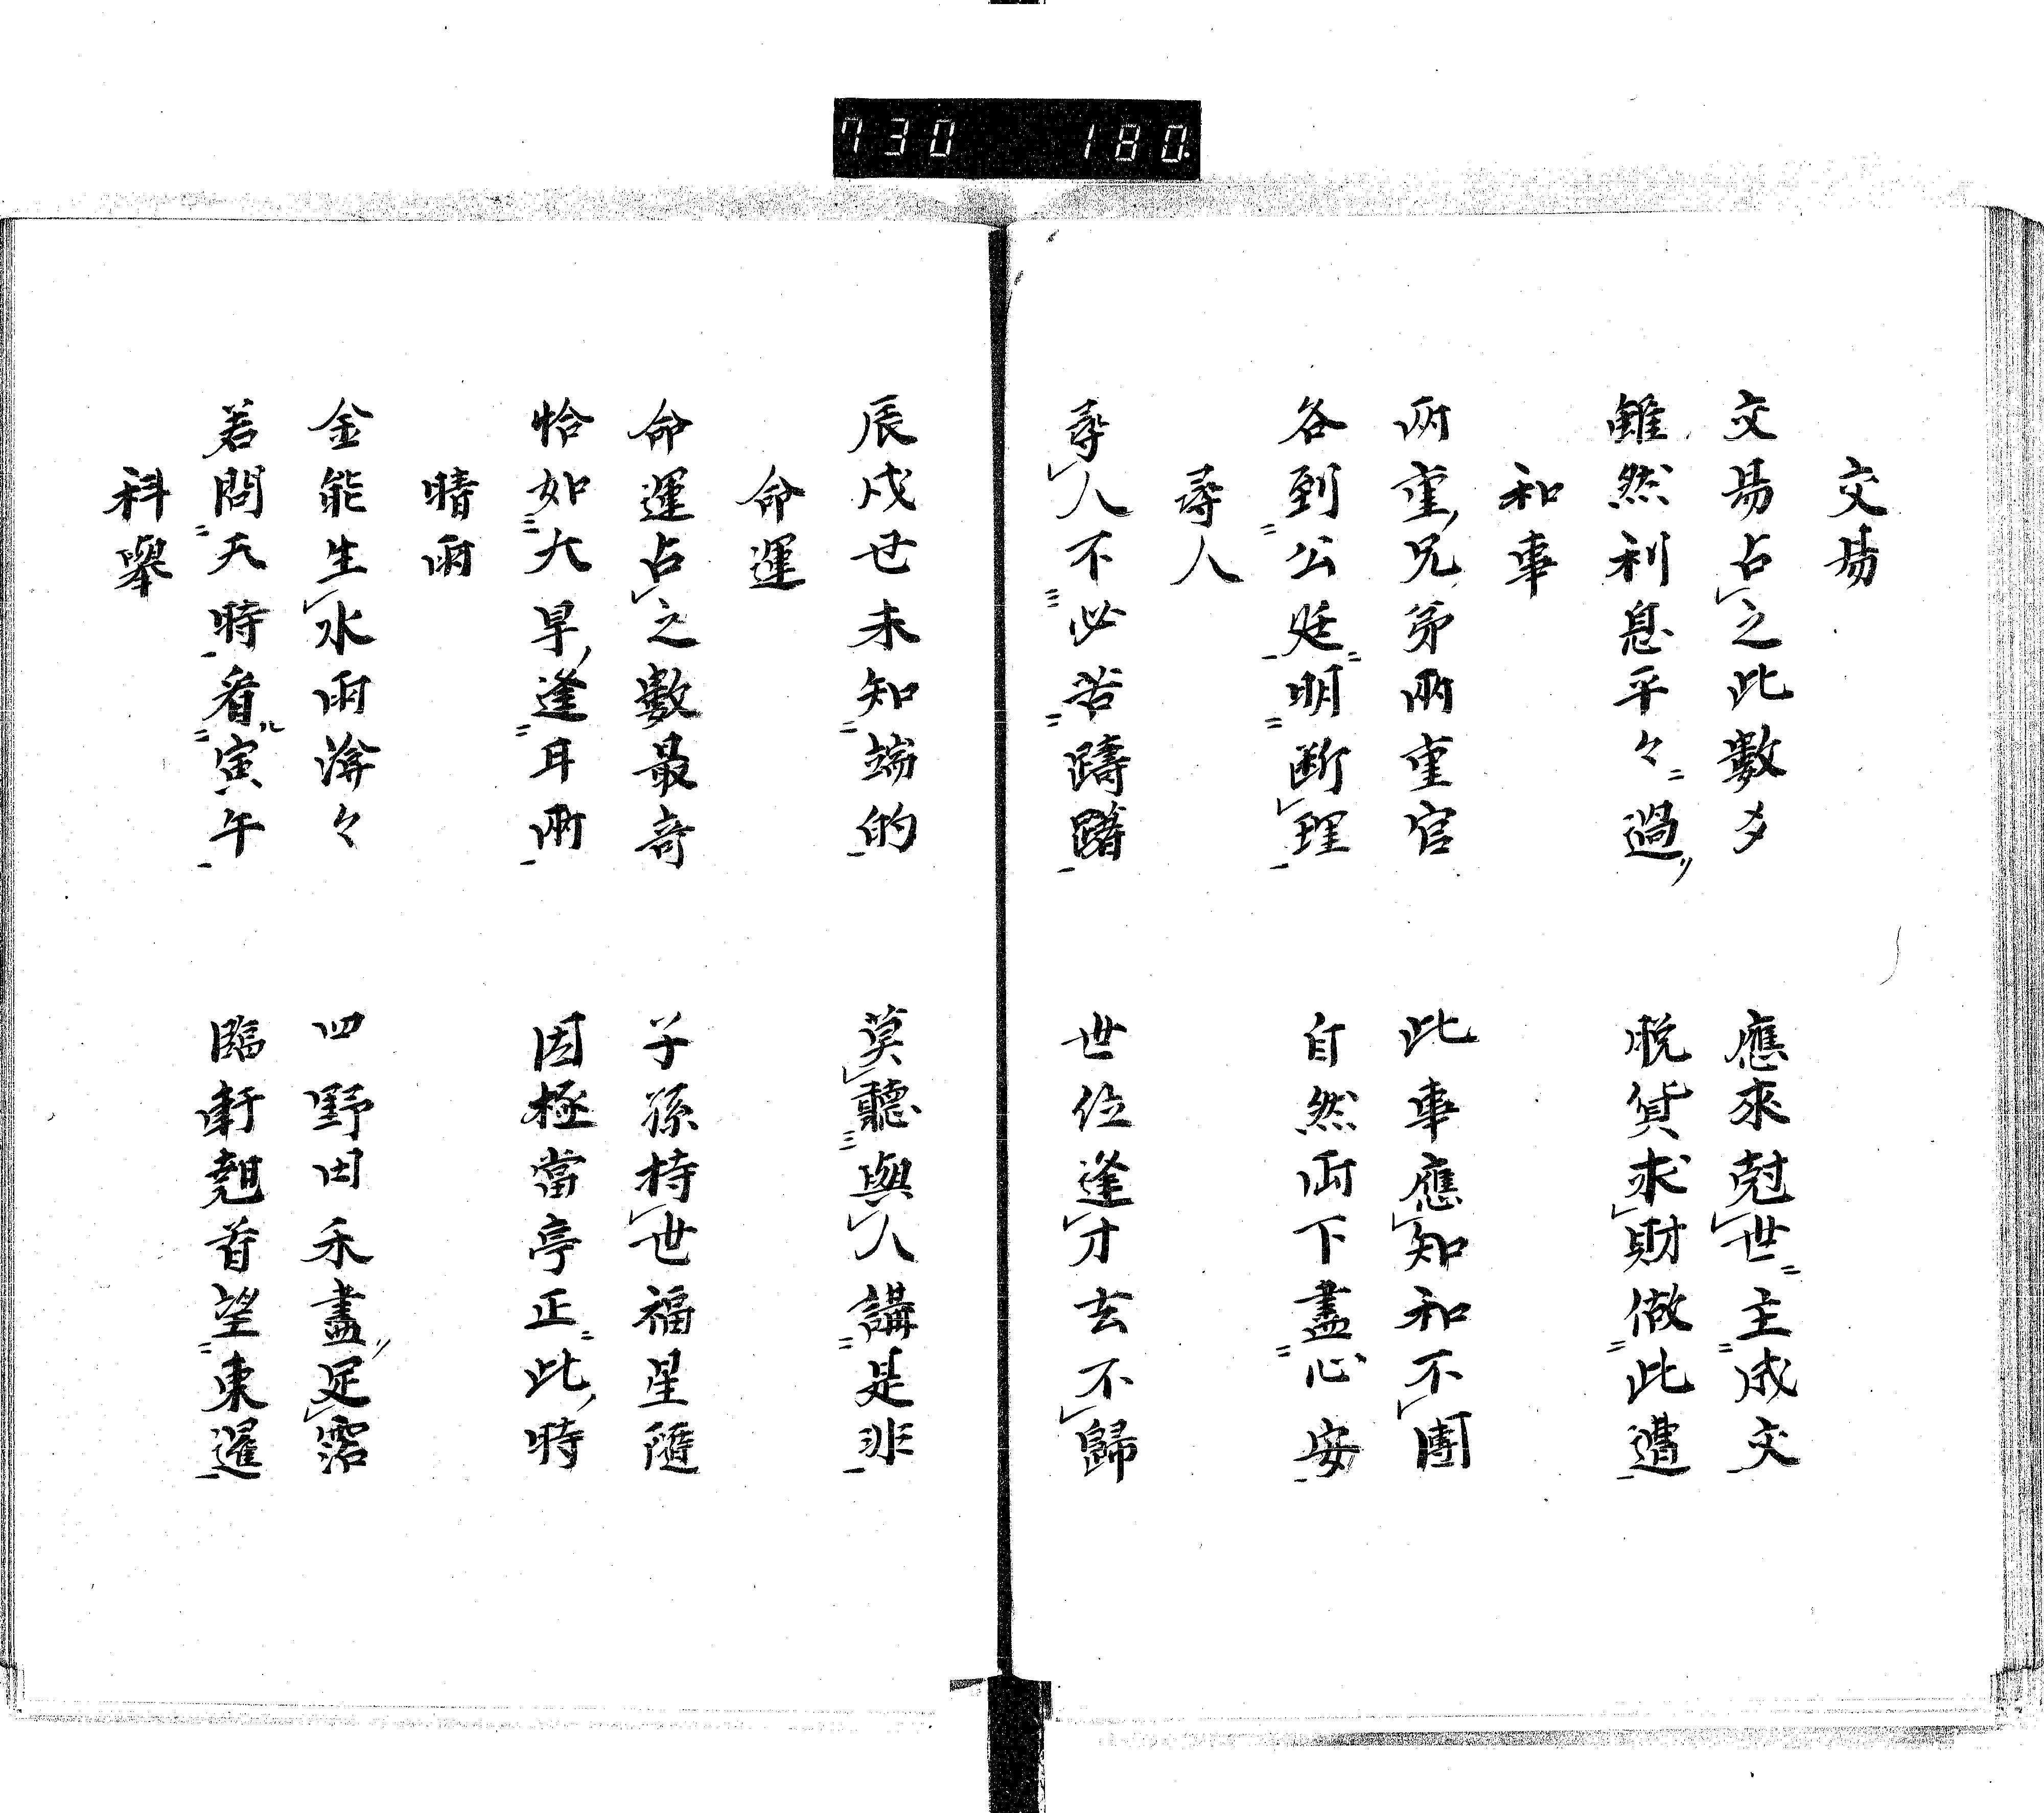 730 180.
交易
交易占之此數多 應來尅世主成交
雖然利息平々過 脱貨求財做此遭
和事
兩重兄弟兩重官 此事應知和不團
各到公廷明断理 自然両下盡心安
尋人
尋人不必苦躊躇 世位逢才去不歸
辰戌世未知端的 莫聽與人講是非
命運
命運占之數最奇 子孫持世福星隨
恰如大早逢耳雨 因極當亭正此時
晴雨
金能生水雨滂々 四野田禾盡足霑
若問天時看寅午 臨軒翹首望東暹
科舉